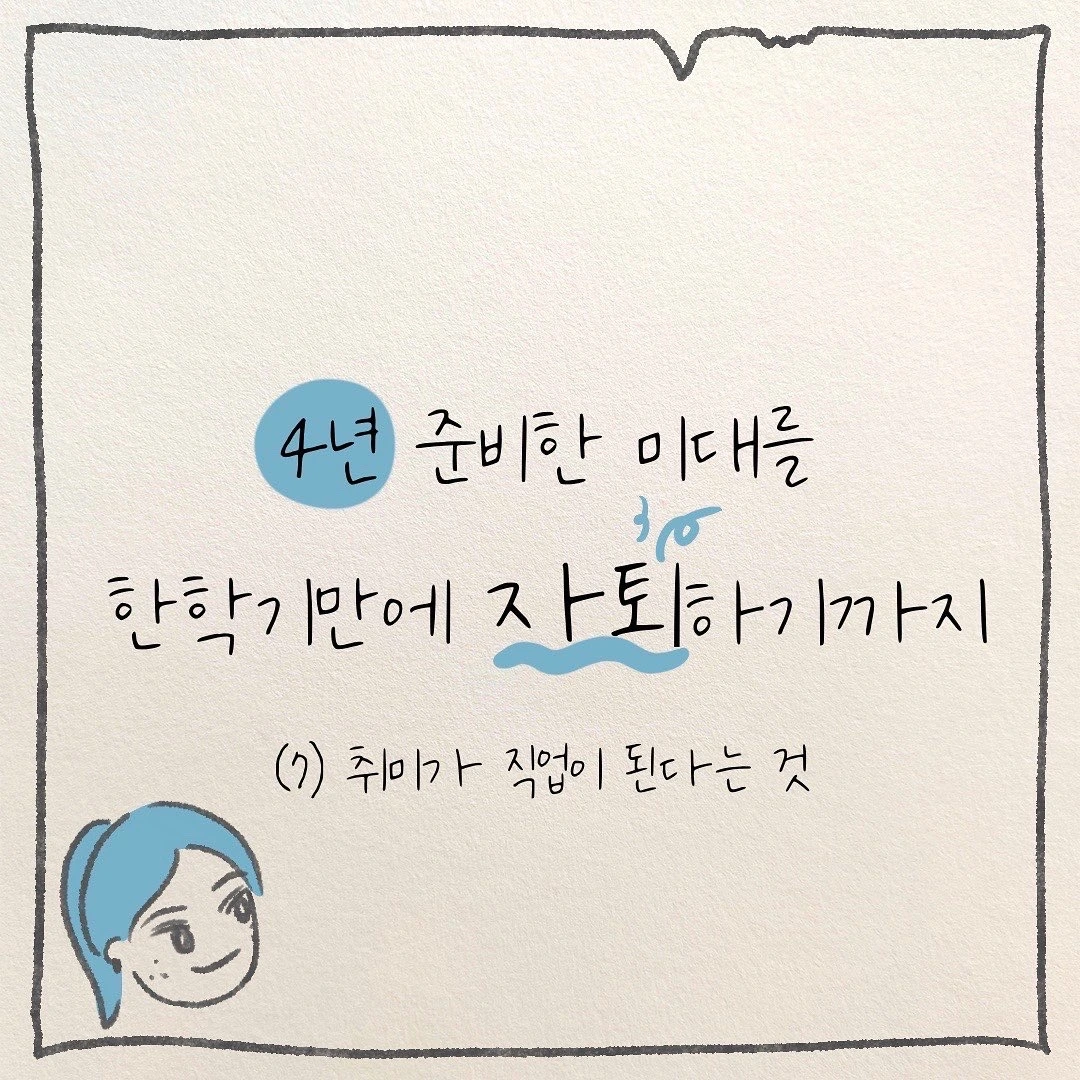 4년 준비한 미대를
한학기만에 자퇴하기까지
(7) 취미가 직업이 된다는 것